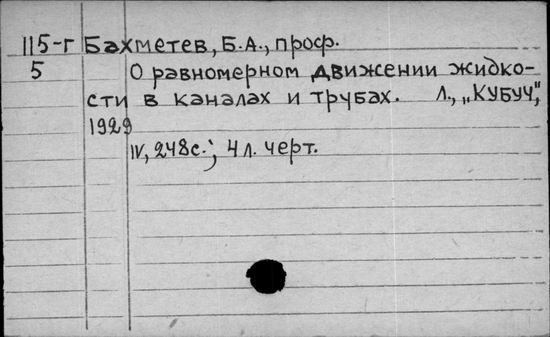 115-г Бахметев, Б.А., проф.
5 О равномерном движении жидко-
сти в каналах и трубах. Л., „КУБУЧ",
1929
IV, 248с.; 4 л. черт.